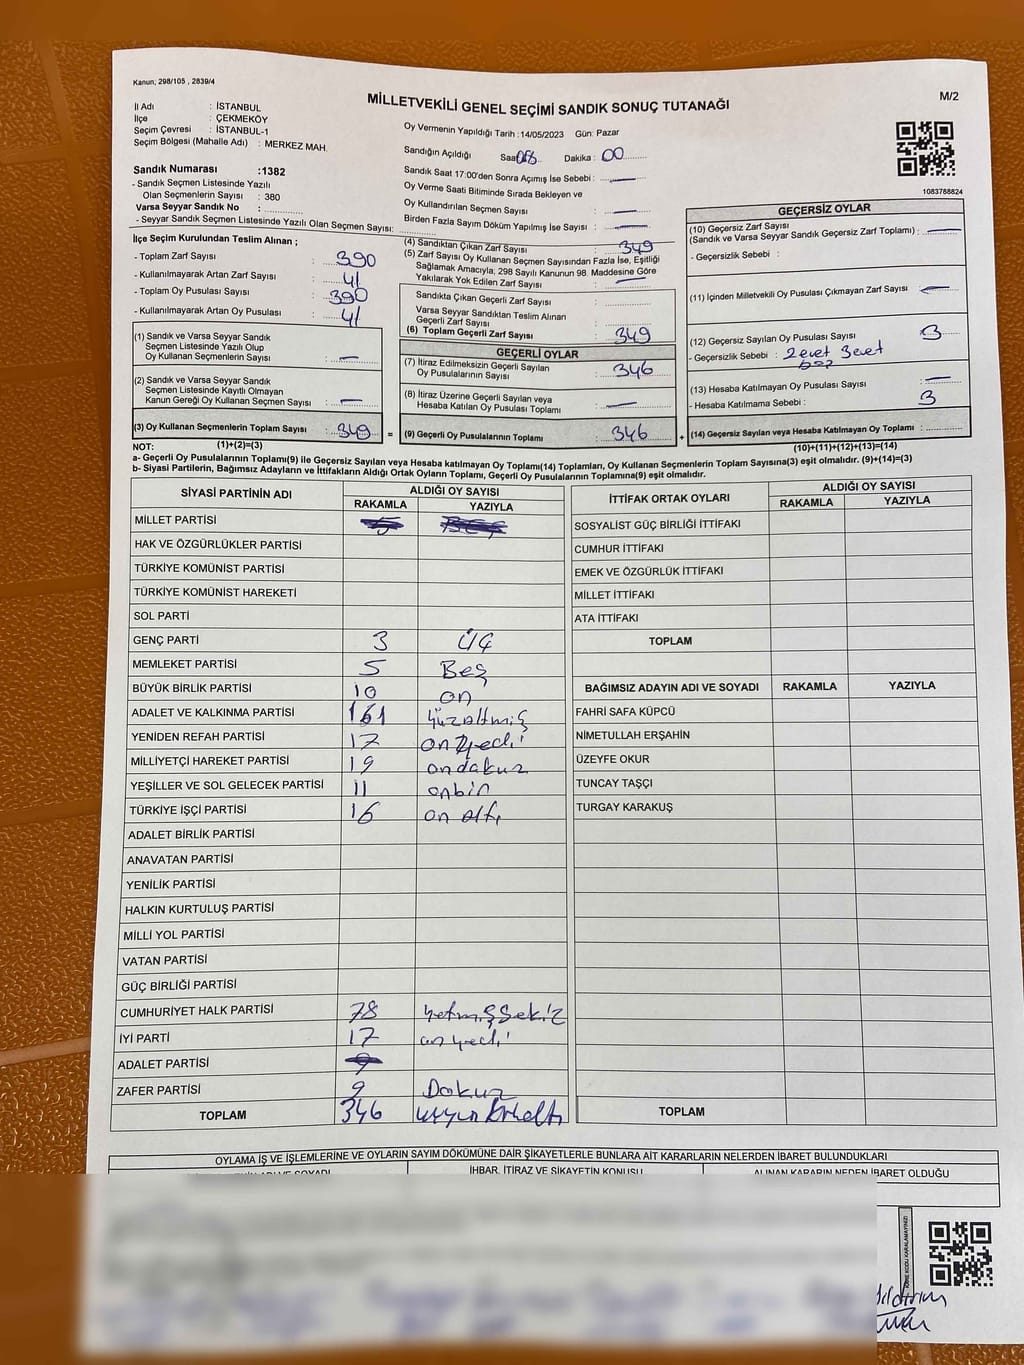 Kanun; 298/105 , 2839/4
MİLLETVEKİLİ GENEL SEÇİMİ SANDIK SONUÇ TUTANAĞI
M/2
İl Adı : İSTANBUL
İlçe : ÇEKMEKÖY
Seçim Çevresi : İSTANBUL-1
Seçim Bölgesi (Mahalle Adı) : MERKEZ MAH.
Sandık Numarası :1382
- Sandık Seçmen Listesinde Yazılı
Olan Seçmenlerin Sayısı : 380
Varsa Seyyar Sandık No :
- Seyyar Sandık Seçmen Listesinde Yazılı Olan Seçmen Sayısı:
Oy Vermenin Yapıldığı Tarih :14/05/2023 Gün: Pazar
Sandığın Açıldığı Saat Dakika : 00
Sandık Saat 17:00'den Sonra Açımış İse Sebebi : —
Oy Verme Saati Bitiminde Sırada Bekleyen ve
Oy Kullandırılan Seçmen Sayısı : —
Birden Fazla Sayım Döküm Yapılmış İse Sayısı : —
1083788824
İlçe Seçim Kurulundan Teslim Alınan ;
- Toplam Zarf Sayısı : 390
- Kullanılmayarak Artan Zarf Sayısı : 41
- Toplam Oy Pusulası Sayısı : 390
- Kullanılmayarak Artan Oy Pusulası : 41
(1) Sandık ve Varsa Seyyar Sandık
Seçmen Listesinde Yazılı Olup
Oy Kullanan Seçmenlerin Sayısı : —
(2) Sandık ve Varsa Seyyar Sandık
Seçmen Listesinde Kayıtlı Olmayan
Kanun Gereği Oy Kullanan Seçmen Sayısı : —
(3) Oy Kullanan Seçmenlerin Toplam Sayısı : 349
(4) Sandıktan Çıkan Zarf Sayısı : 349
(5) Zarf Sayısı Oy Kullanan Seçmen Sayısından Fazla İse, Eşitliği
Sağlamak Amacıyla; 298 Sayılı Kanunun 98. Maddesine Göre
Yakılarak Yok Edilen Zarf Sayısı : —
Sandıkta Çıkan Geçerli Zarf Sayısı :
Varsa Seyyar Sandıktan Teslim Alınan
Geçerli Zarf Sayısı :
(6) Toplam Geçerli Zarf Sayısı : 349
GEÇERLİ OYLAR
(7) İtiraz Edilmeksizin Geçerli Sayılan
Oy Pusulalarının Sayısı : 346
(8) İtiraz Üzerine Geçerli Sayılan veya
Hesaba Katılan Oy Pusulası Toplamı : —
= (9) Geçerli Oy Pusulalarının Toplamı : 346
GEÇERSİZ OYLAR
(10) Geçersiz Zarf Sayısı
(Sandık ve Varsa Seyyar Sandık Geçersiz Zarf Toplamı) : —
- Geçersizlik Sebebi :
(11) İçinden Milletvekili Oy Pusulası Çıkmayan Zarf Sayısı —
(12) Geçersiz Sayılan Oy Pusulası Sayısı : 3
- Geçersizlik Sebebi : 2 evet 3 evet
boş
(13) Hesaba Katılmayan Oy Pusulası Sayısı : —
- Hesaba Katılmama Sebebi : 3
+ (14) Geçersiz Sayılan veya Hesaba Katılmayan Oy Toplamı :
NOT: (1)+(2)=(3) (10)+(11)+(12)+(13)=(14)
a- Geçerli Oy Pusulalarının Toplamı(9) ile Geçersiz Sayılan veya Hesaba katılmayan Oy Toplamı(14) Toplamları, Oy Kullanan Seçmenlerin Toplam Sayısına(3) eşit olmalıdır. (9)+(14)=(3)
b- Siyasi Partilerin, Bağımsız Adayların ve İttifakların Aldığı Ortak Oyların Toplamı, Geçerli Oy Pusulalarının Toplamına(9) eşit olmalıdır.
SİYASİ PARTİNİN ADI ALDIĞI OY SAYISI
RAKAMLA YAZIYLA
MİLLET PARTİSİ 5 BEŞ
HAK VE ÖZGÜRLÜKLER PARTİSİ
TÜRKİYE KOMÜNİST PARTİSİ
TÜRKİYE KOMÜNİST HAREKETİ
SOL PARTİ
GENÇ PARTİ 3 ÜÇ
MEMLEKET PARTİSİ 5 Beş
BÜYÜK BİRLİK PARTİSİ 10 on
ADALET VE KALKINMA PARTİSİ 161 yüzaltmış
YENİDEN REFAH PARTİSİ 17 onyedi
MİLLİYETÇİ HAREKET PARTİSİ 19 ondokuz
YEŞİLLER VE SOL GELECEK PARTİSİ 11 onbir
TÜRKİYE İŞÇİ PARTİSİ 16 on altı
ADALET BİRLİK PARTİSİ
ANAVATAN PARTİSİ
YENİLİK PARTİSİ
HALKIN KURTULUŞ PARTİSİ
MİLLİ YOL PARTİSİ
VATAN PARTİSİ
GÜÇ BİRLİĞİ PARTİSİ
CUMHURİYET HALK PARTİSİ 78 yetmişsekiz
İYİ PARTİ 17 on yedi
ADALET PARTİSİ 9
ZAFER PARTİSİ 9 Dokuz
TOPLAM 346
İTTİFAK ORTAK OYLARI ALDIĞI OY SAYISI
RAKAMLA YAZIYLA
SOSYALİST GÜÇ BİRLİĞİ İTTİFAKI
CUMHUR İTTİFAKI
EMEK VE ÖZGÜRLÜK İTTİFAKI
MİLLET İTTİFAKI
ATA İTTİFAKI
TOPLAM
BAĞIMSIZ ADAYIN ADI VE SOYADI RAKAMLA YAZIYLA
FAHRİ SAFA KÜPCÜ
NİMETULLAH ERŞAHİN
ÜZEYFE OKUR
TUNCAY TAŞÇI
TURGAY KARAKUŞ
TOPLAM
OYLAMA İŞ VE İŞLEMLERİNE VE OYLARIN SAYIM DÖKÜMÜNE DAİR ŞİKAYETLERLE BUNLARA AİT KARARLARIN NELERDEN İBARET BULUNDUKLARI
İHBAR, İTİRAZ VE ŞİKAYETİN KONUSU ALINAN KARARIN NEDEN İBARET OLDUĞU